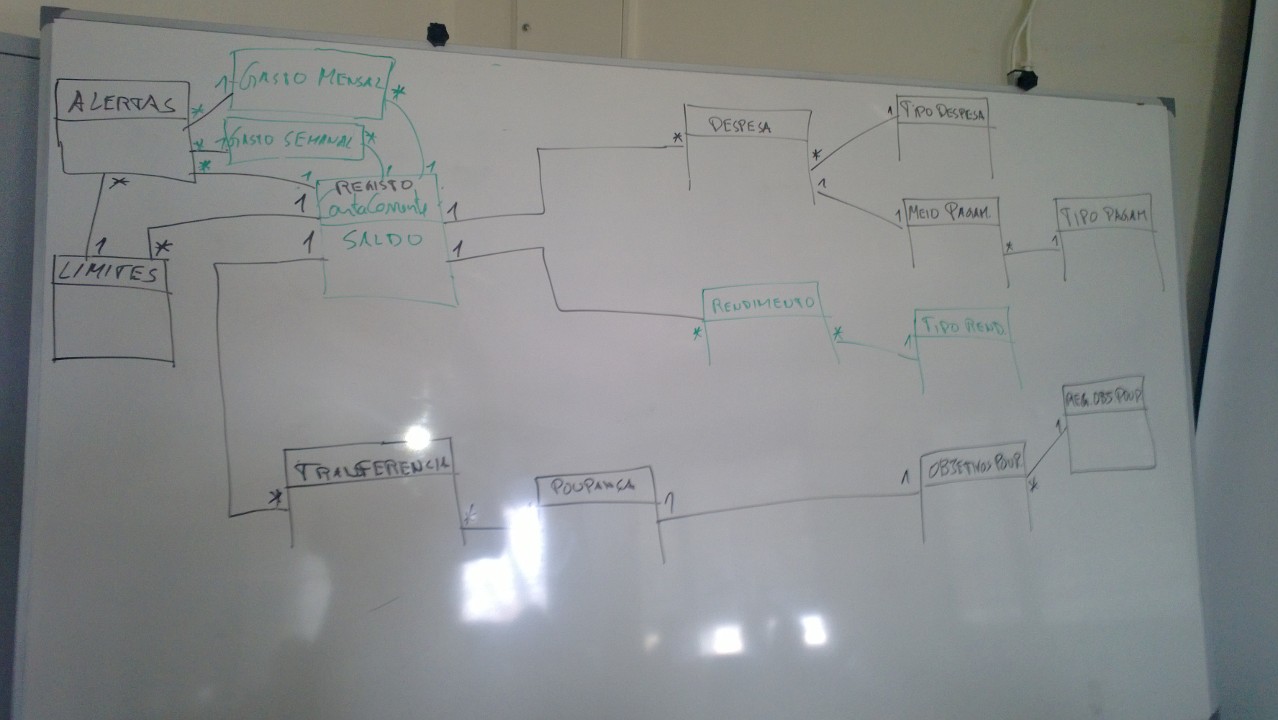 GASTO MENSAL
ALERTAS
GASTO SEMANAL
REGISTO
ContaCorrente
SALDO
LIMITES
DESPESA
TIPO DESPESA
MEIO PAGAM.
TIPO PAGAM.
RENDIMENTO
TIPO REND.
TRANSFERENCIA
POUPANÇA
OBJETIVOS POUP.
REG. OBJ POUP.
1
*
*
*
1
*
*
*
1
1
1
*
1
1
*
1
1
1
*
*
1
1
1
*
1
*
*
1
*
*
1
1
*
1